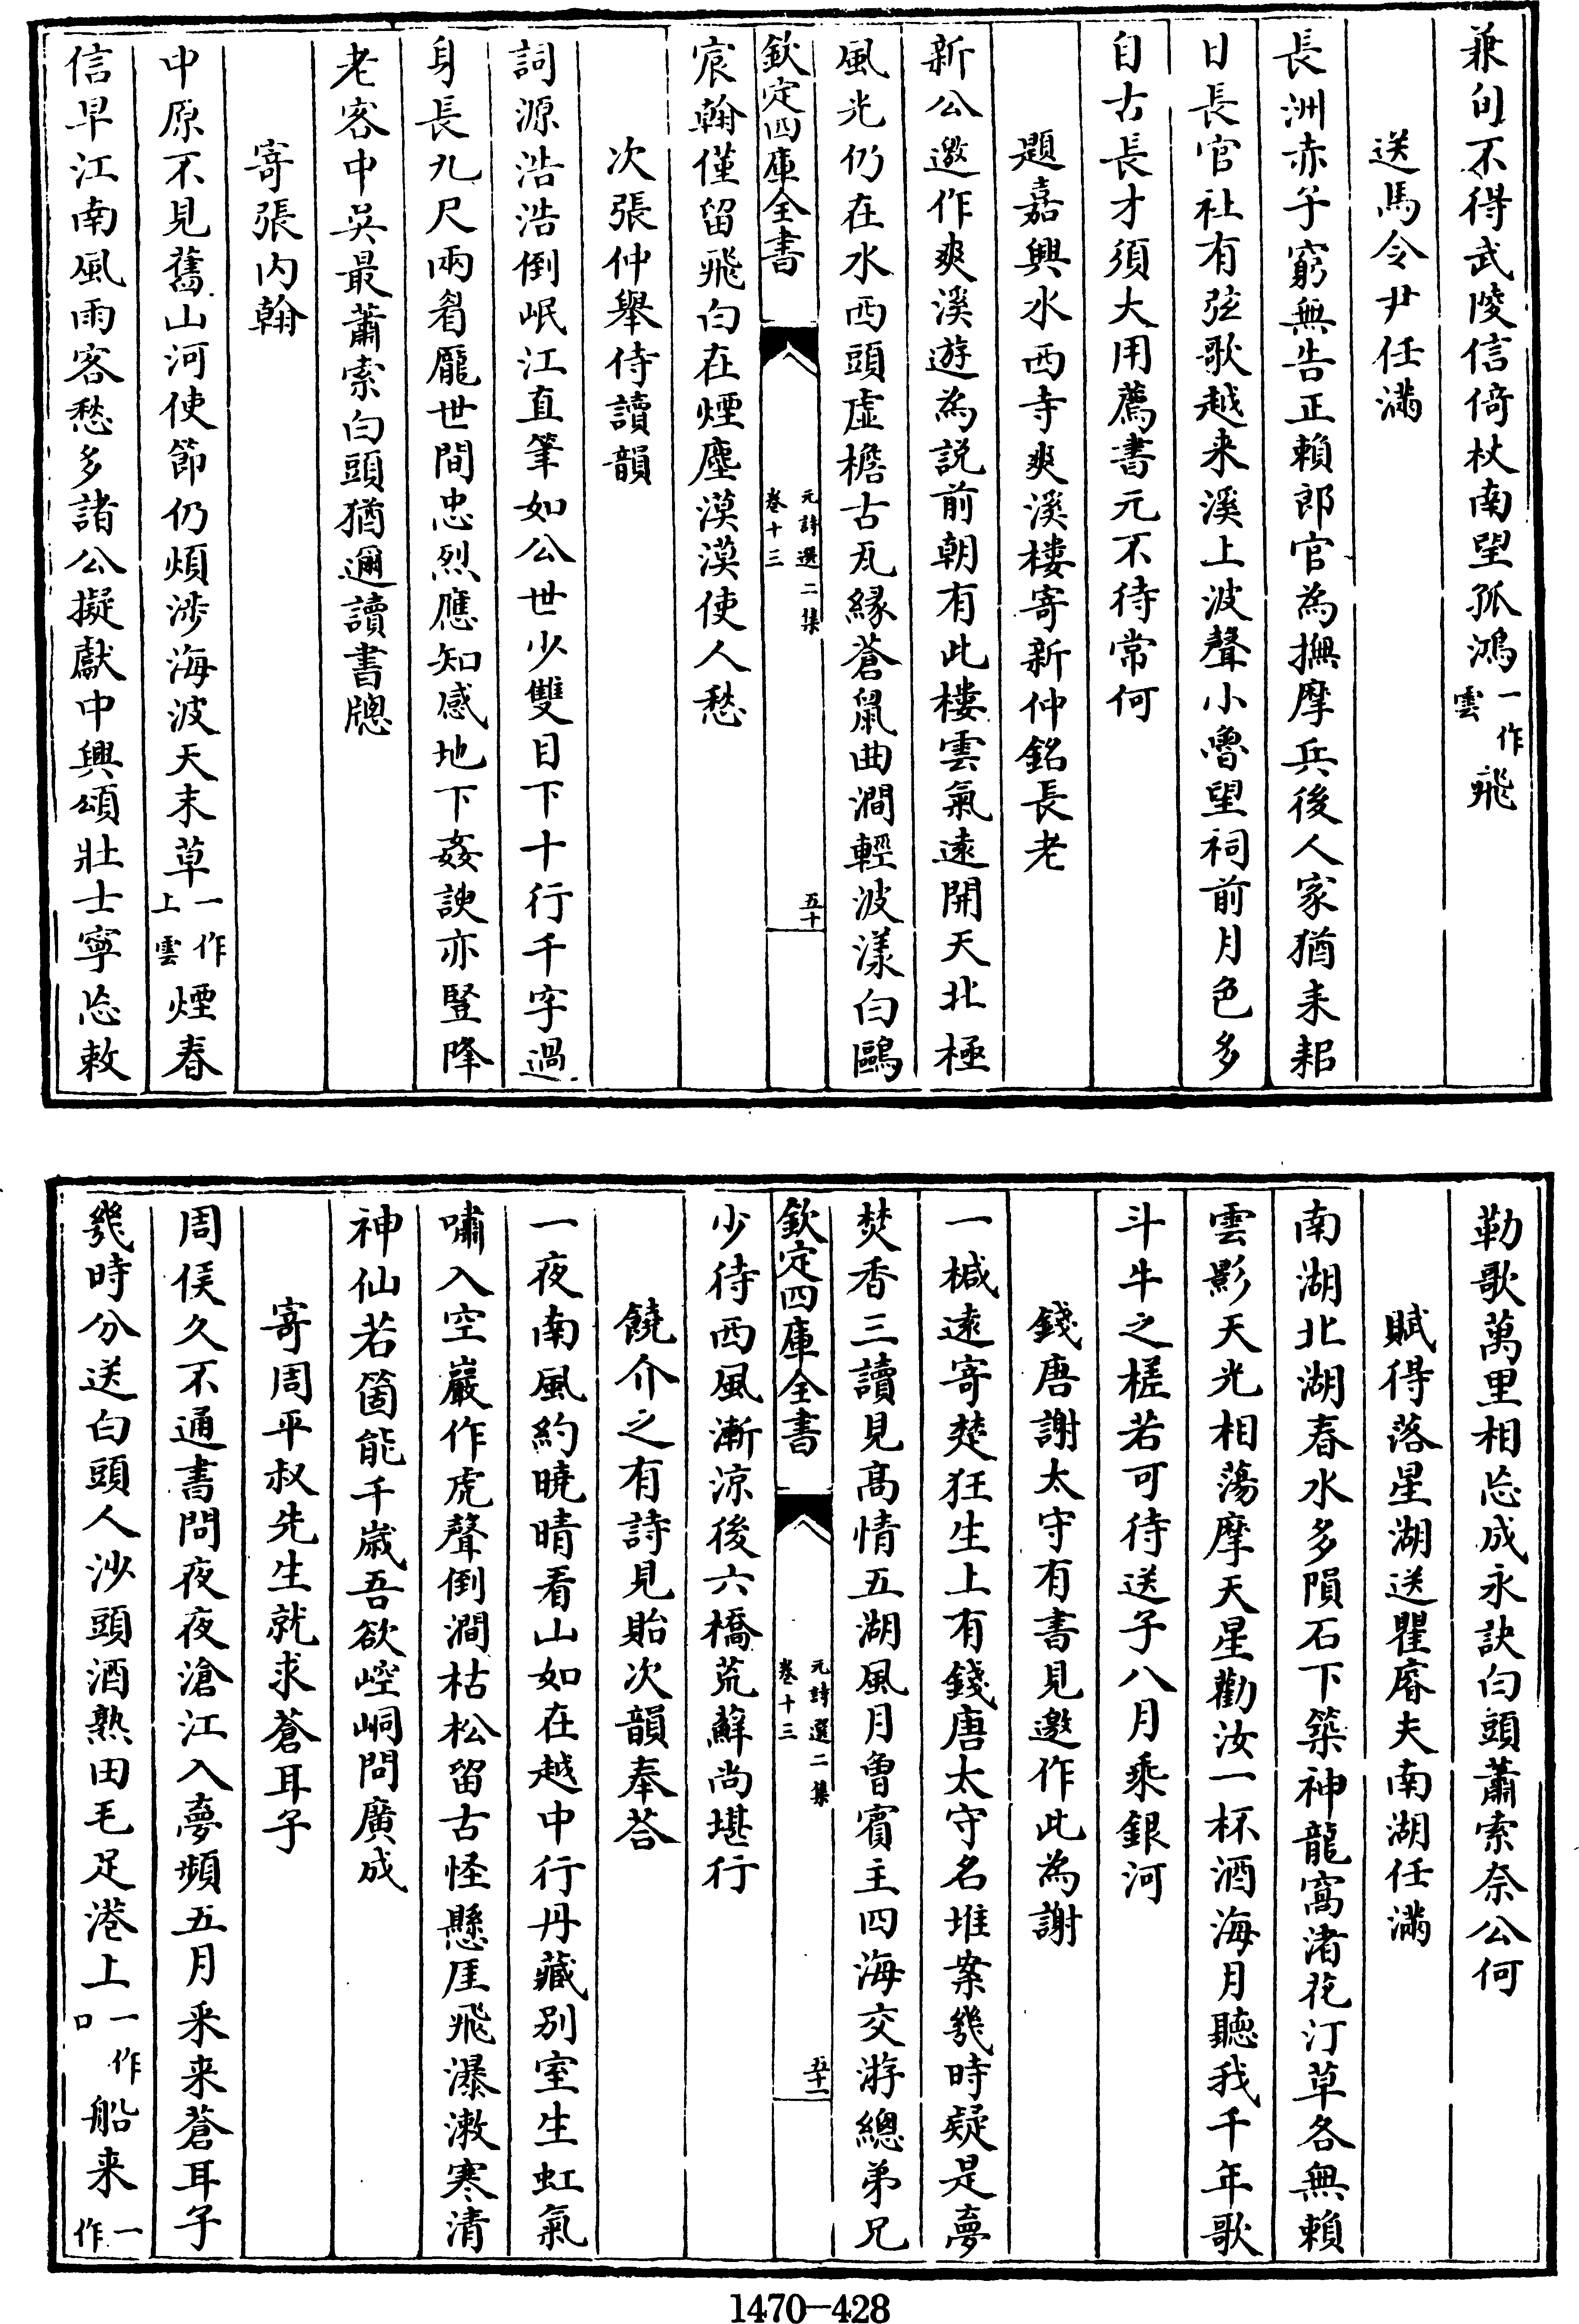 兼旬不得武陵信倚杖南望孤鴻一作雲飛
送馬令尹任滿
長洲赤子窮無告正賴郎官為撫摩兵後人家猶耒耜
日長官社有弦歌越来溪上波聲小魯望祠前月色多
自古長才須大用薦書元不待常何
題嘉興水西寺爽溪樓寄新仲銘長老
新公邀作爽溪遊為説前朝有此樓雲氣遠開天北極
風光仍在水西頭虚檐古瓦緣蒼鼠曲澗輕波漾白鷗
欽定四庫全書
元詩選二集
卷十三
五十
宸翰僅留飛白在煙塵漠漠使人愁
次張仲舉侍讀韻
詞源浩浩倒岷江直筆如公世少雙目下十行千字過
身長九尺兩眉龎世間忠烈應知感地下姦諛亦豎降
老客中吳最蕭索白頭猶邇讀書牕
寄張内翰
中原不見舊山河使節仍煩涉海波天末草一作上雲煙春
信早江南風雨客愁多諸公擬獻中興頌壯士寧忘敕
勒歌萬里相忘成永訣白頭蕭索奈公何
賦得落星湖送瞿睿夫南湖任滿
南湖北湖春水多隕石下築神龍窩渚花汀草各無賴
雲影天光相蕩摩天星勸汝一杯酒海月聽我千年歌
斗牛之槎若可待送子八月乘銀河
錢唐謝太守有書見邀作此為謝
一椷遠寄楚狂生上有錢唐太守名堆案幾時疑是夢
焚香三讀見高情五湖風月曾賓主四海交游總弟兄
欽定四庫全書
元詩選二集
卷十三
五十一
少待西風漸涼後六橋荒蘚尚堪行
饒介之有詩見貽次韻奉荅
一夜南風約曉晴看山如在越中行丹藏别室生虹氣
嘯入空巖作虎聲倒澗枯松留古怪懸厓飛瀑漱寒清
神仙若箇能千歲吾欲崆峒問廣成
寄周平叔先生就求蒼耳子
周侯久不通書問夜夜滄江入夢頻五月采来蒼耳子
幾時分送白頭人沙頭酒熟田毛足港上一作口船来一作
1470-428